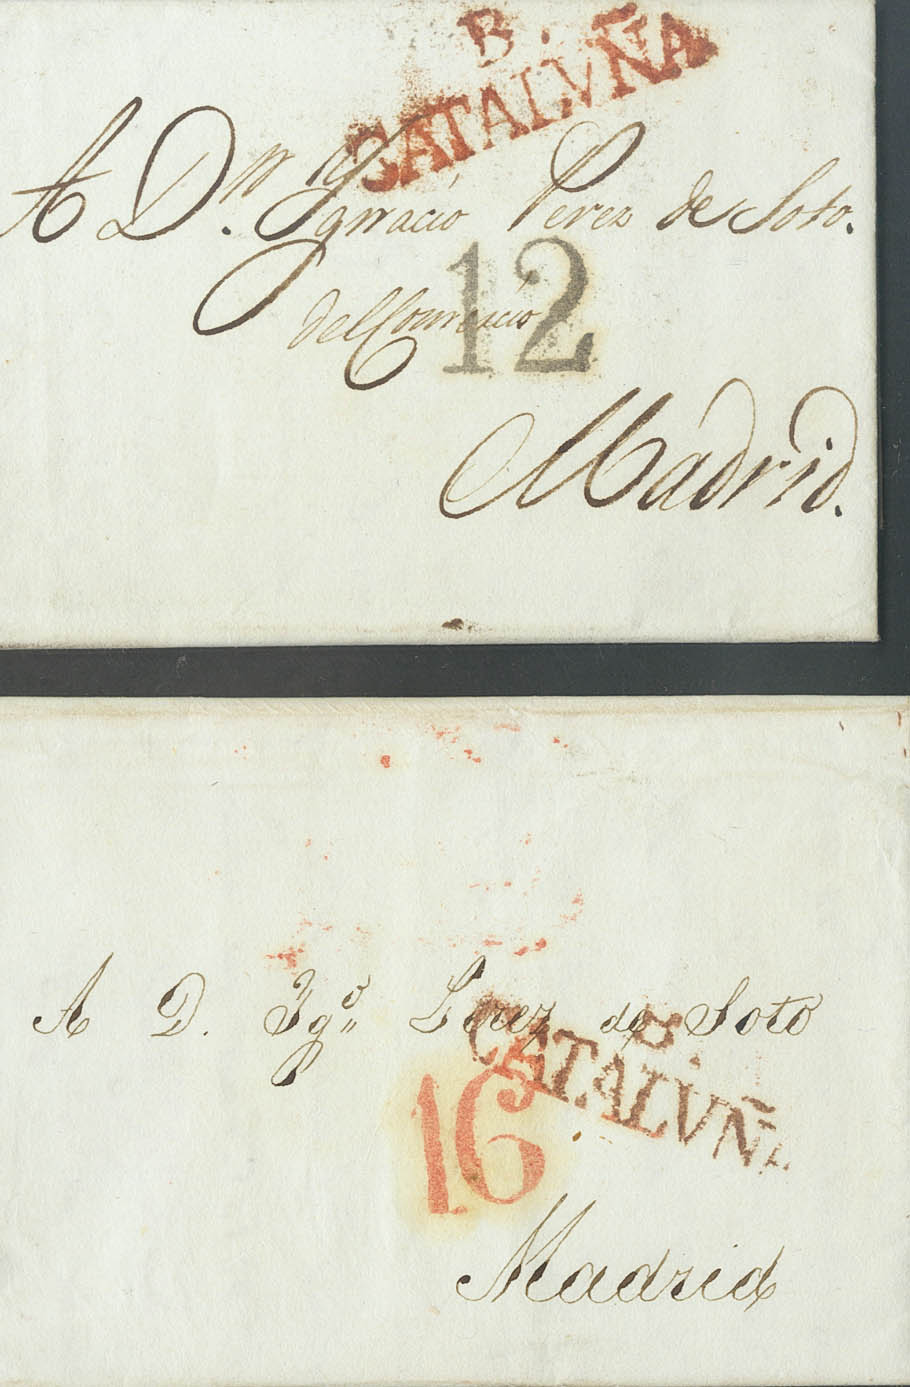 B.
CATALVÑA
A Dn. Ygnacio Perez de Soto.
del Comercio
12
Madrid.
A D. Ygo. Perez de Soto
B.
CATALVÑA
16
Madrid